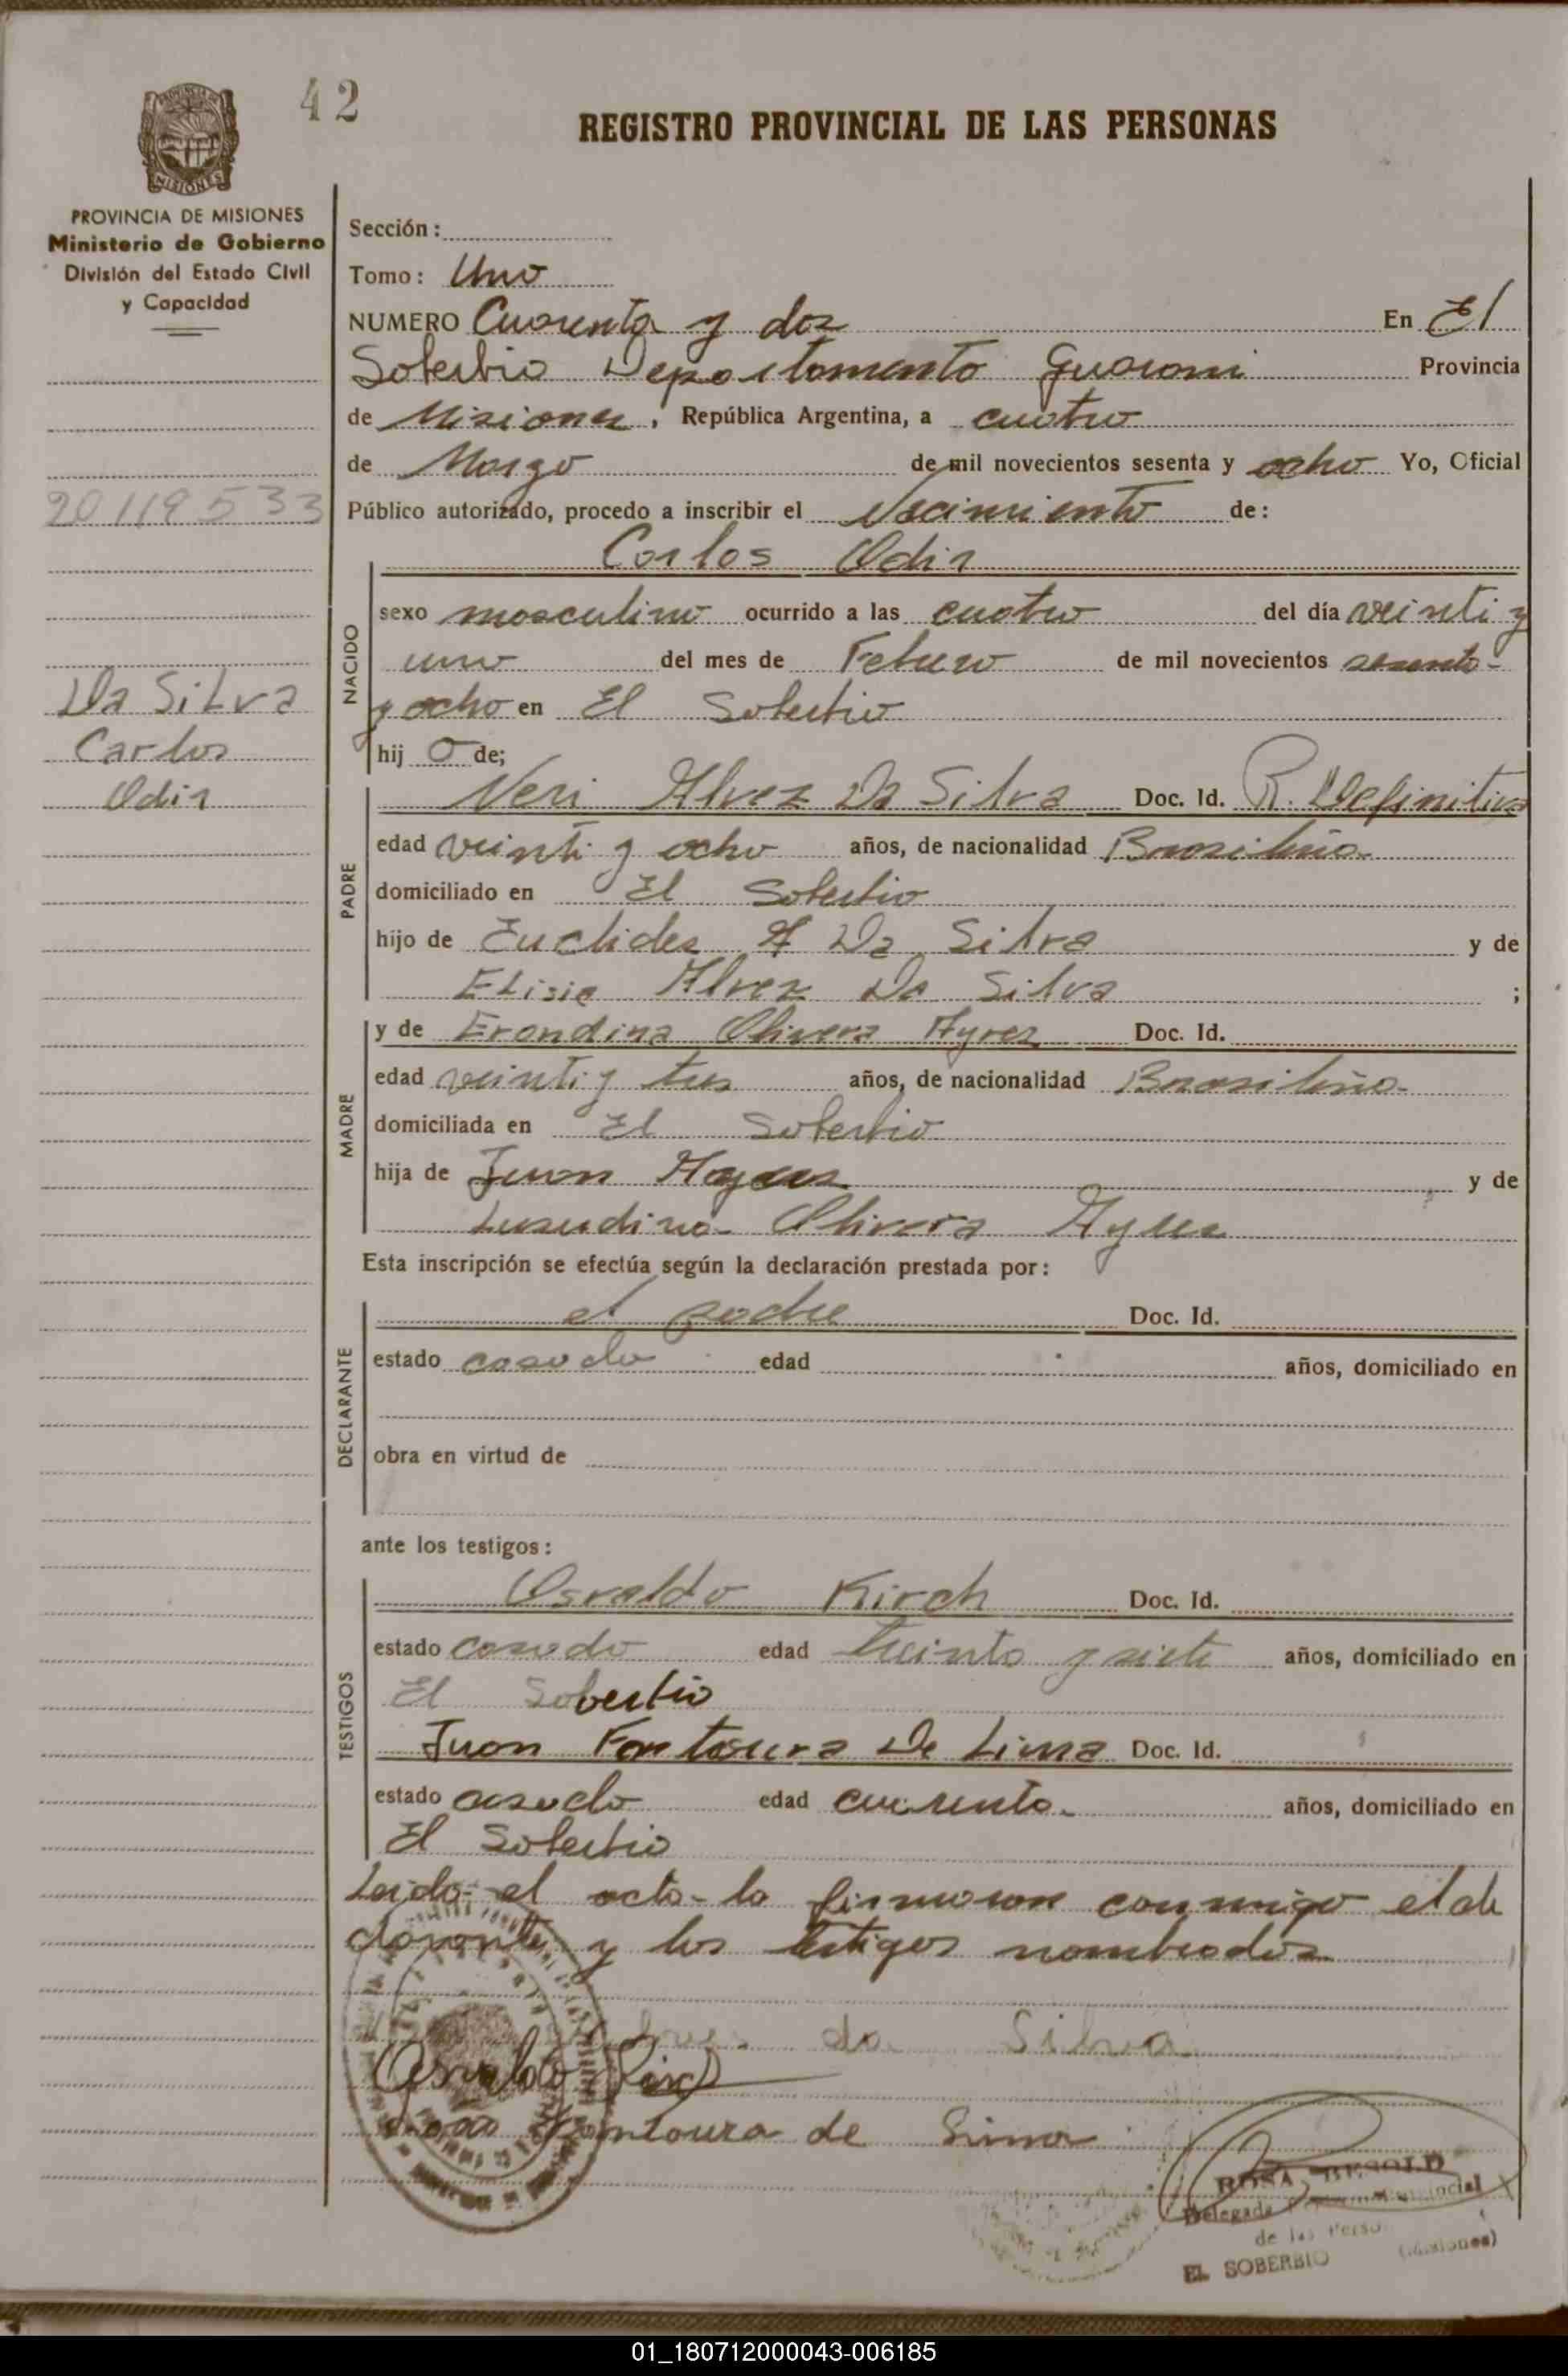 42
REGISTRO PROVINCIAL DE LAS PERSONAS
MISIONES
PROVINCIA DE MISIONES
Ministerio de Gobierno
División del Estado Civil
y Capacidad
20119533
Da Silva
Carlos
Odir
Sección:
Tomo: Uno
NUMERO Cuarenta y dos En El
Soberbio Departamento Guarani Provincia
de Misiones, República Argentina, a cuatro
de Marzo de mil novecientos sesenta y ocho Yo, Oficial
Público autorizado, procedo a inscribir el Nacimiento de:
Carlos Odir
NACIDO
sexo masculino ocurrido a las cuatro del día veinti y
uno del mes de Febrero de mil novecientos sesenta
y ocho en El Soberbio
hij o de;
PADRE
Neri Alvez Da Silva Doc. Id. R. Definitiva
edad veinti y ocho años, de nacionalidad Brasileña
domiciliado en El Soberbio
hijo de Euclides A Da Silva y de
Elisia Alvez Da Silva ;
MADRE
y de Erondina Olivera Ayres Doc. Id.
edad veinti y tres años, de nacionalidad Brasileña
domiciliada en El Soberbio
hija de Juan Ayres y de
Olivera Ayres
Esta inscripción se efectúa según la declaración prestada por:
DECLARANTE
el padre Doc. Id.
estado casado edad años, domiciliado en
obra en virtud de
ante los testigos:
TESTIGOS
Osvaldo Kirch Doc. Id.
estado casado edad treinta y siete años, domiciliado en
El Soberbio
Juan Fontoura De Lima Doc. Id.
estado casado edad cuarenta años, domiciliado en
El Soberbio
Leida el acta la firmaron conmigo el de
clarante y los testigos nombrados
da Silva
Osvaldo Kirch
Joao Fontoura de Lima
ROSA BESOLD
Delegada Provincial
de las Perso
EL SOBERBIO (Misiones)
01_180712000043-006185